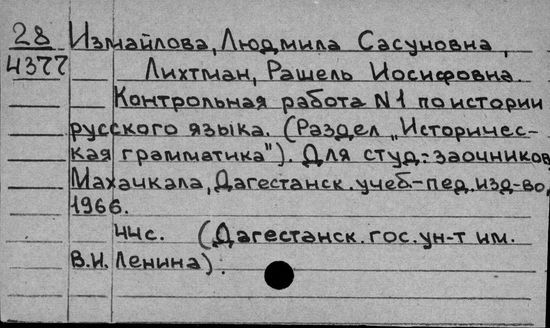 28 Измайлова, Людмила Сасуновна,
4377 Лихтман, Рашель Иосифовна.
Контрольная работа N1 по истории
русского языка. (Раздел „Историчес-
кая грамматика"). Для студ.-заочников
Махачкала, Дагестанск. учеб-пед. изд-во,
1966.
44с. (Дагестанск. гос. ун-т им.
В.И. Ленина).